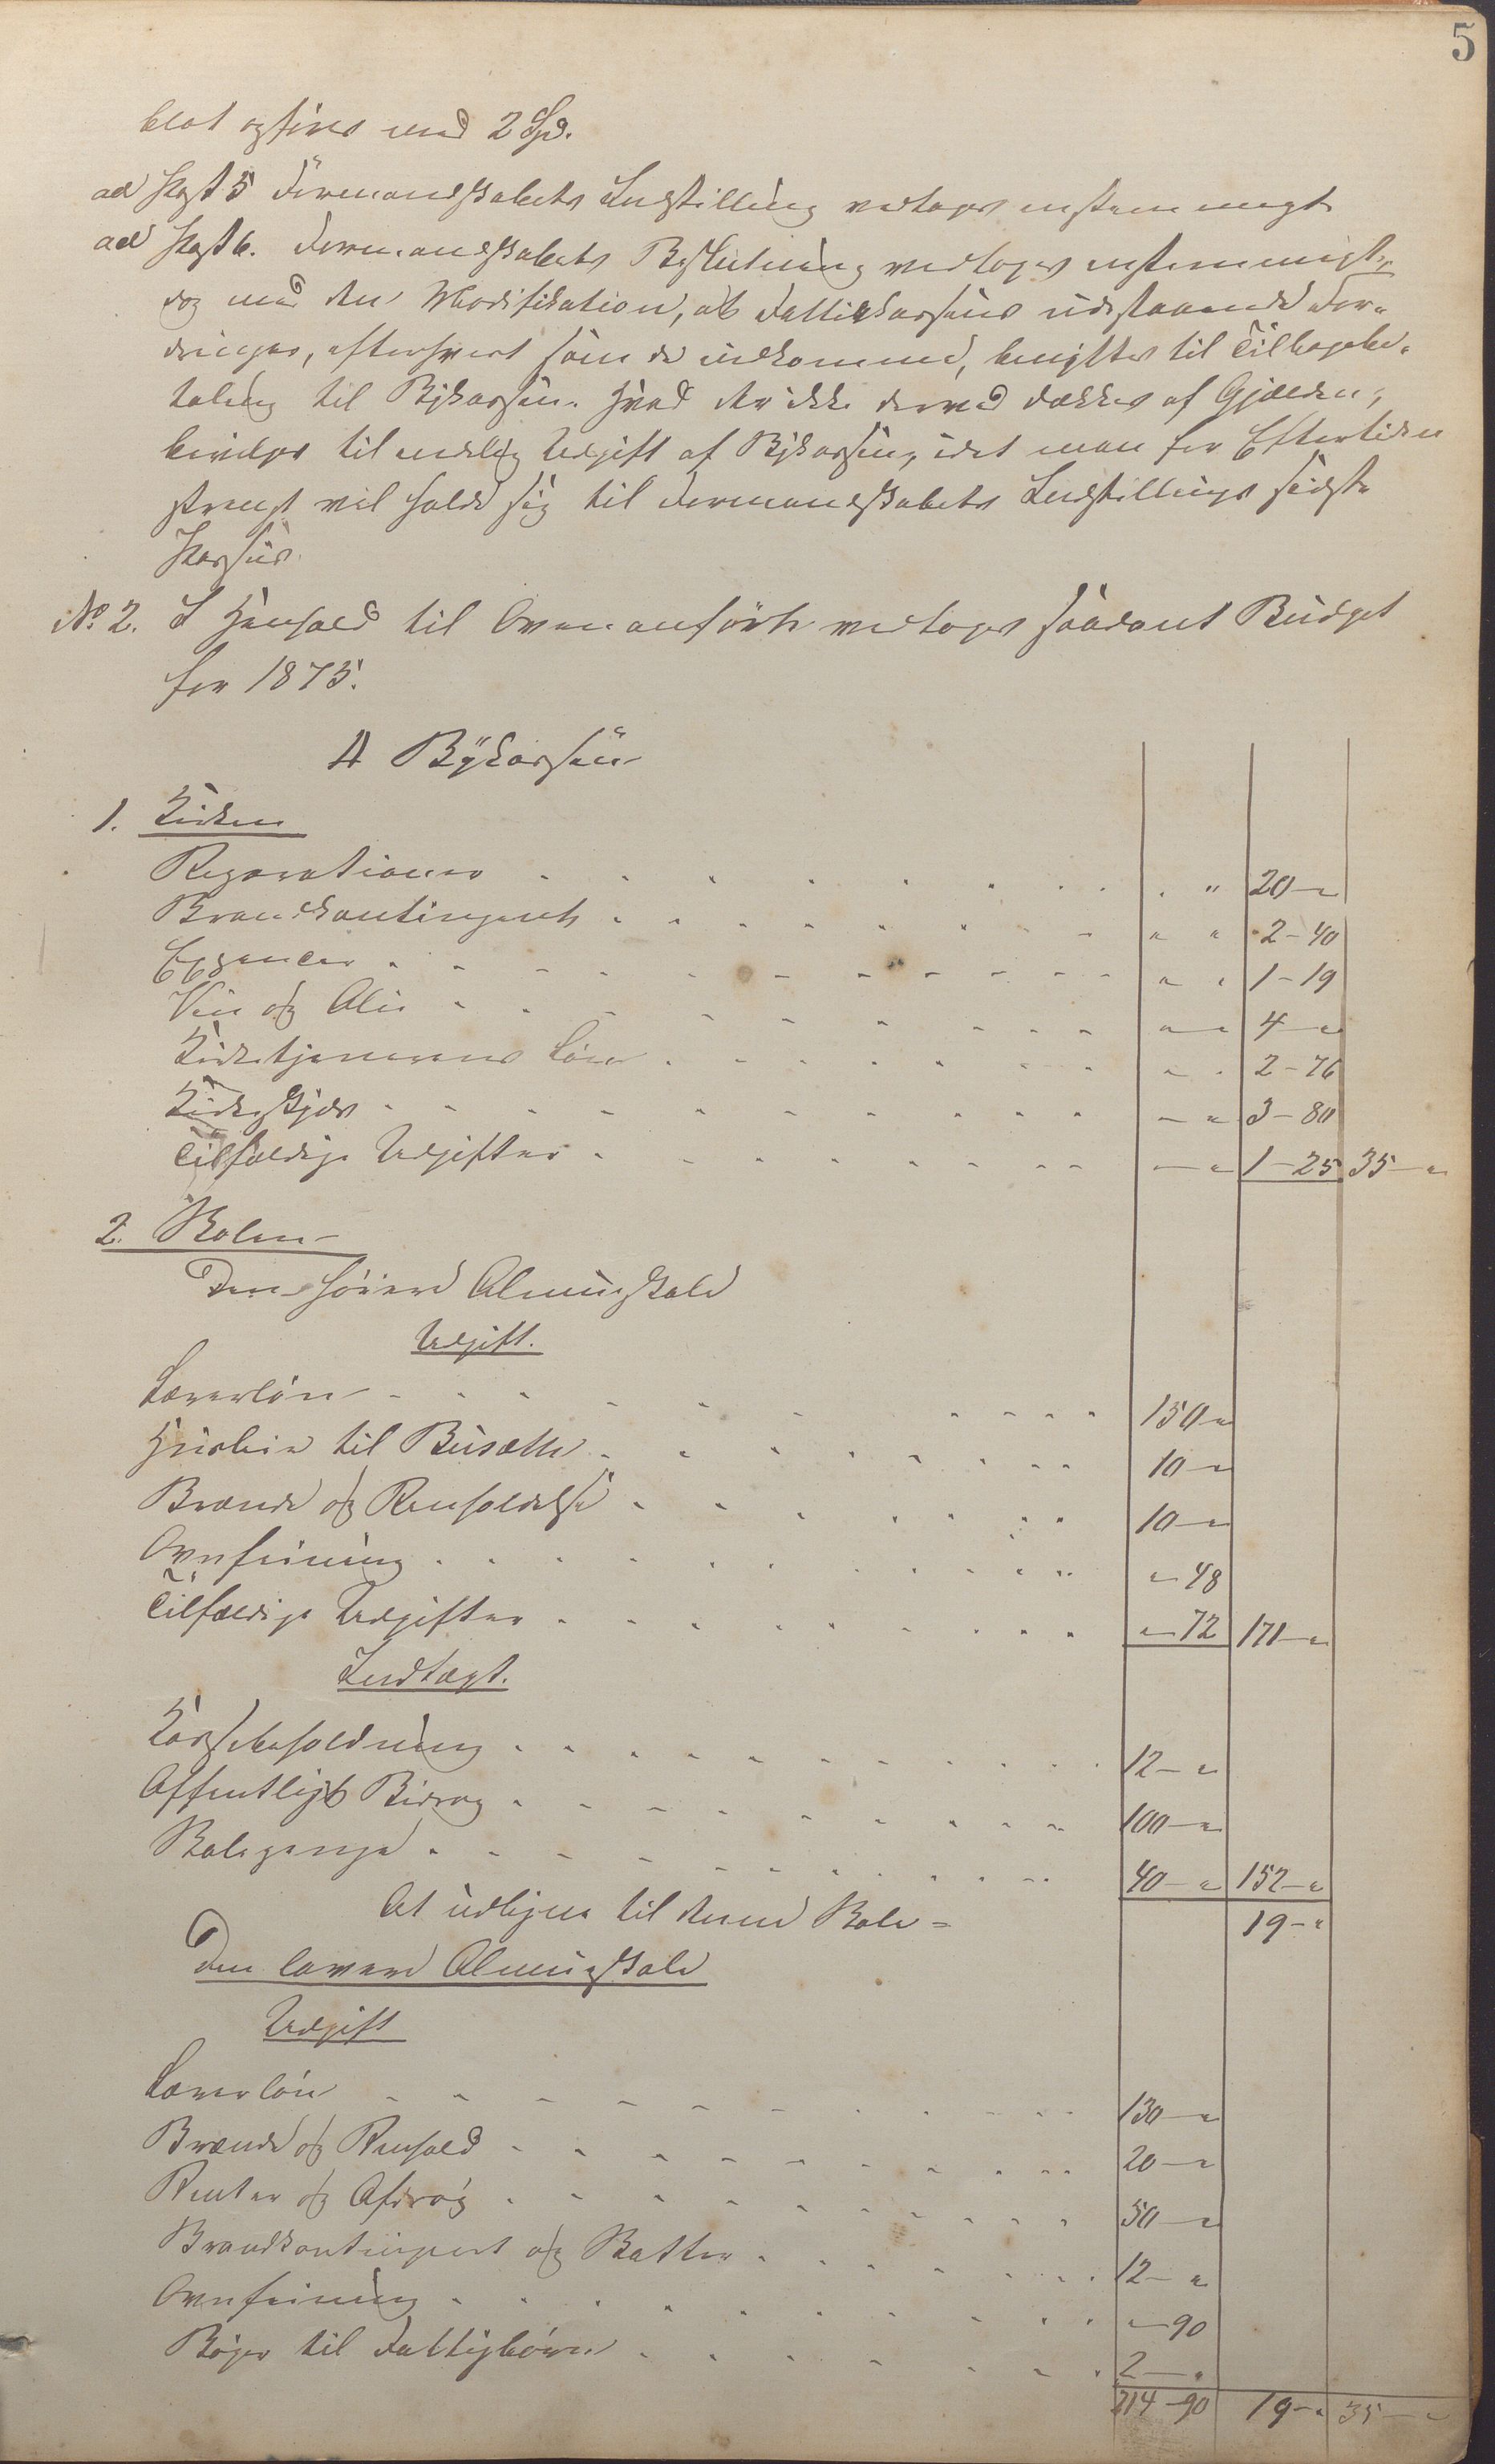 5
blot opføres med 2 Spd.
ad Post 5 Formandskabets Indstilling vedtoges enstemmigt
ad Post 6. Formandskabets Beslutning vedtoges enstemmigt,
dog med den Modifikation, at Fattikkassens udestaaende For-
dringer, efterhvert som de indkomme, benyttes til Tilbagebe-
taling til Bykassen. Hvad der ikke derved dækkes af Gjælden,
bevilges til endelig Udgift af Bykassen, idet man for Eftertiden
strengt vil holde sig til Formandskabets Indstillings sidste
Passus.
No. 2. I Henhold til Ovenanførte vedtoges saadant Budget
for 1875.
A Bykassen
1. Kirken
Reparationer . . . . . . . . . " 20 - "
Brandkontingent . . . . . . . " " 2 - 40
Expencer . . . . . . . . . " " 1 - 19
Vin og Olie . . . . . . . . " " 4 - "
Kirketjenerens Løn . . . . . . " " 2 - 76
Kirkeskjær . . . . . . . . - " 3 - 80
Tilfældige Udgifter . . . . . . - " 1 - 25 35 - "
2. Skolen
Den høiere Almueskole
Udgift.
Lærerløn . . . . . . . . 150 - "
Husleie til Busætte . . . . . . 10 - "
Brænde og Renholdelse . . . . . . 10 - "
Ovnfeining . . . . . . . . " - 48
Tilfældige Udgifter . . . . . . . " - 72 171 - "
Indtægt.
Kassebeholdning . . . . . . . . 12 - "
Offentligt Bidrag . . . . . . . 100 - "
Skolepenge . . . . . . . . 40 - " 152 - "
At udligne til denne Skole - 19 - "
Den lavere Almueskole
Udgift
Lærerløn . . . . . . . . 130 - "
Brænde og Renhold . . . . . . . 20 - "
Renter og Afdrag . . . . . . . 50 - "
Brandkontingent og Skatter . . . . . 12 - "
Ovnfeining . . . . . . . . " - 90
Bøger til Fattigbørn . . . . . . 2 - "
214 - 90 19 - " 35 - "